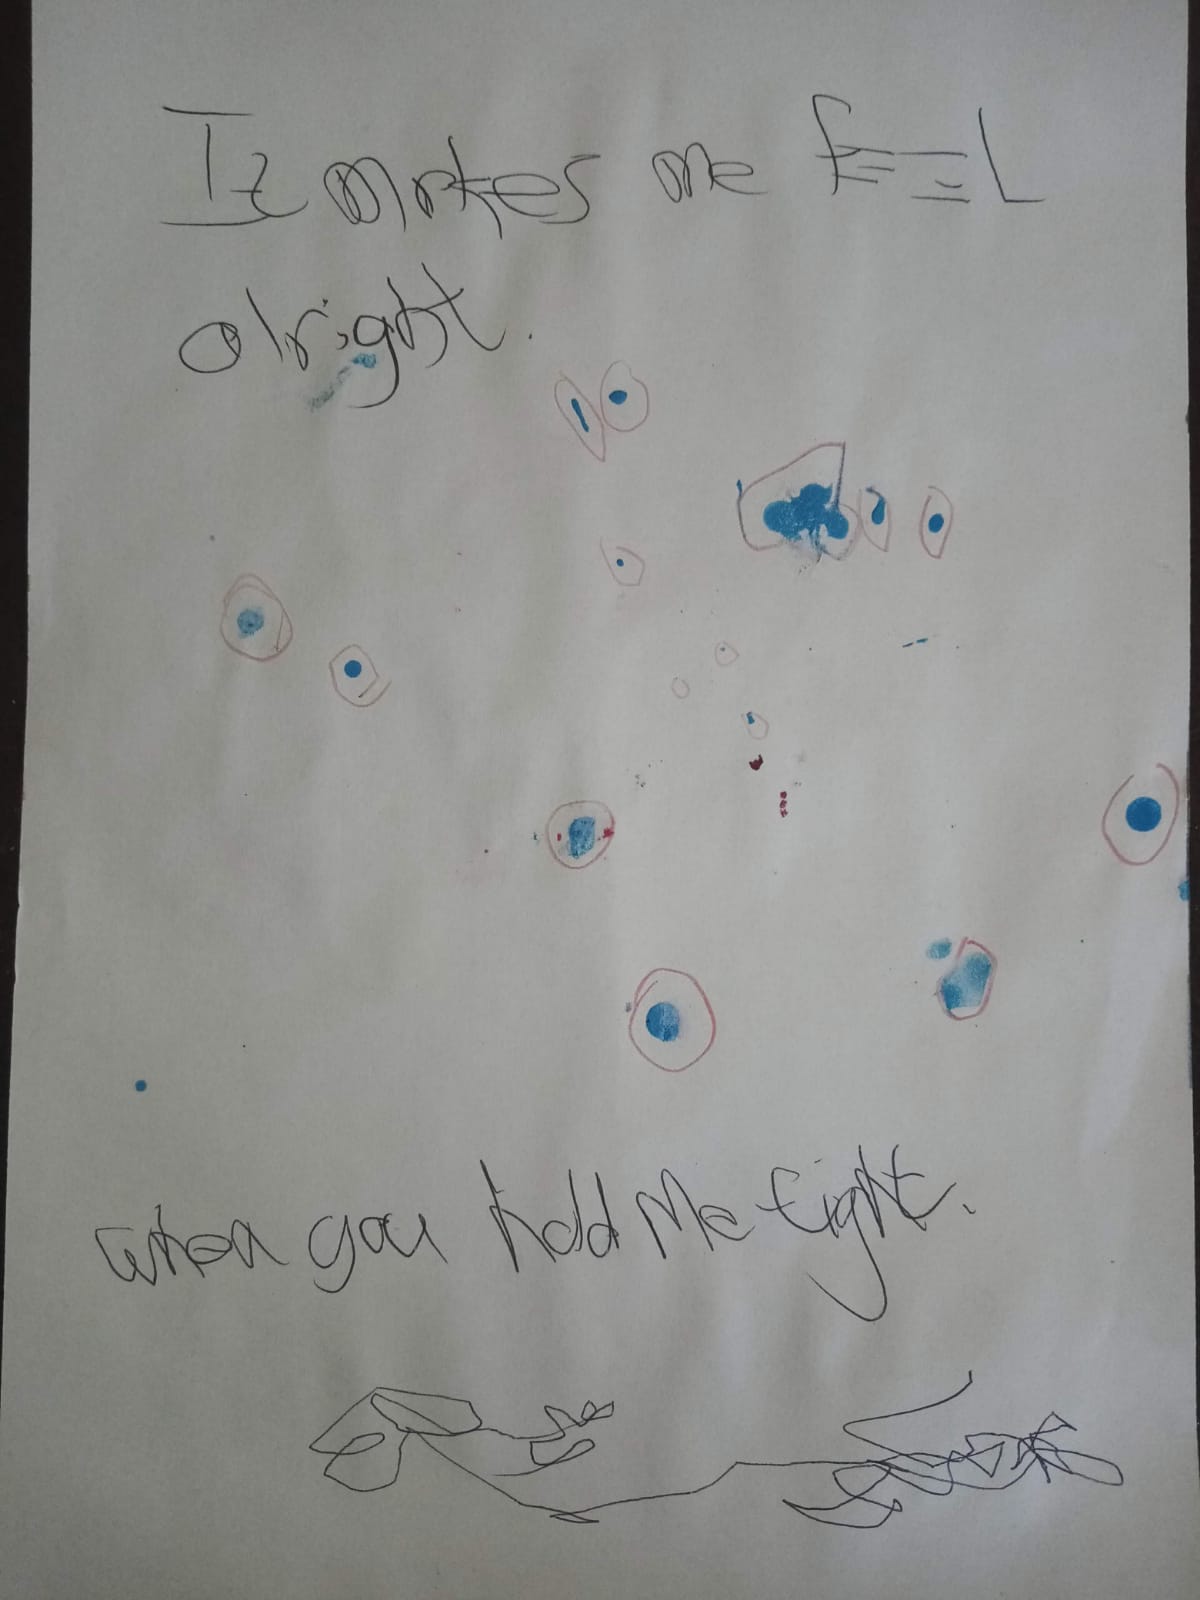 It makes me feel
alright.
when you hold me tight.